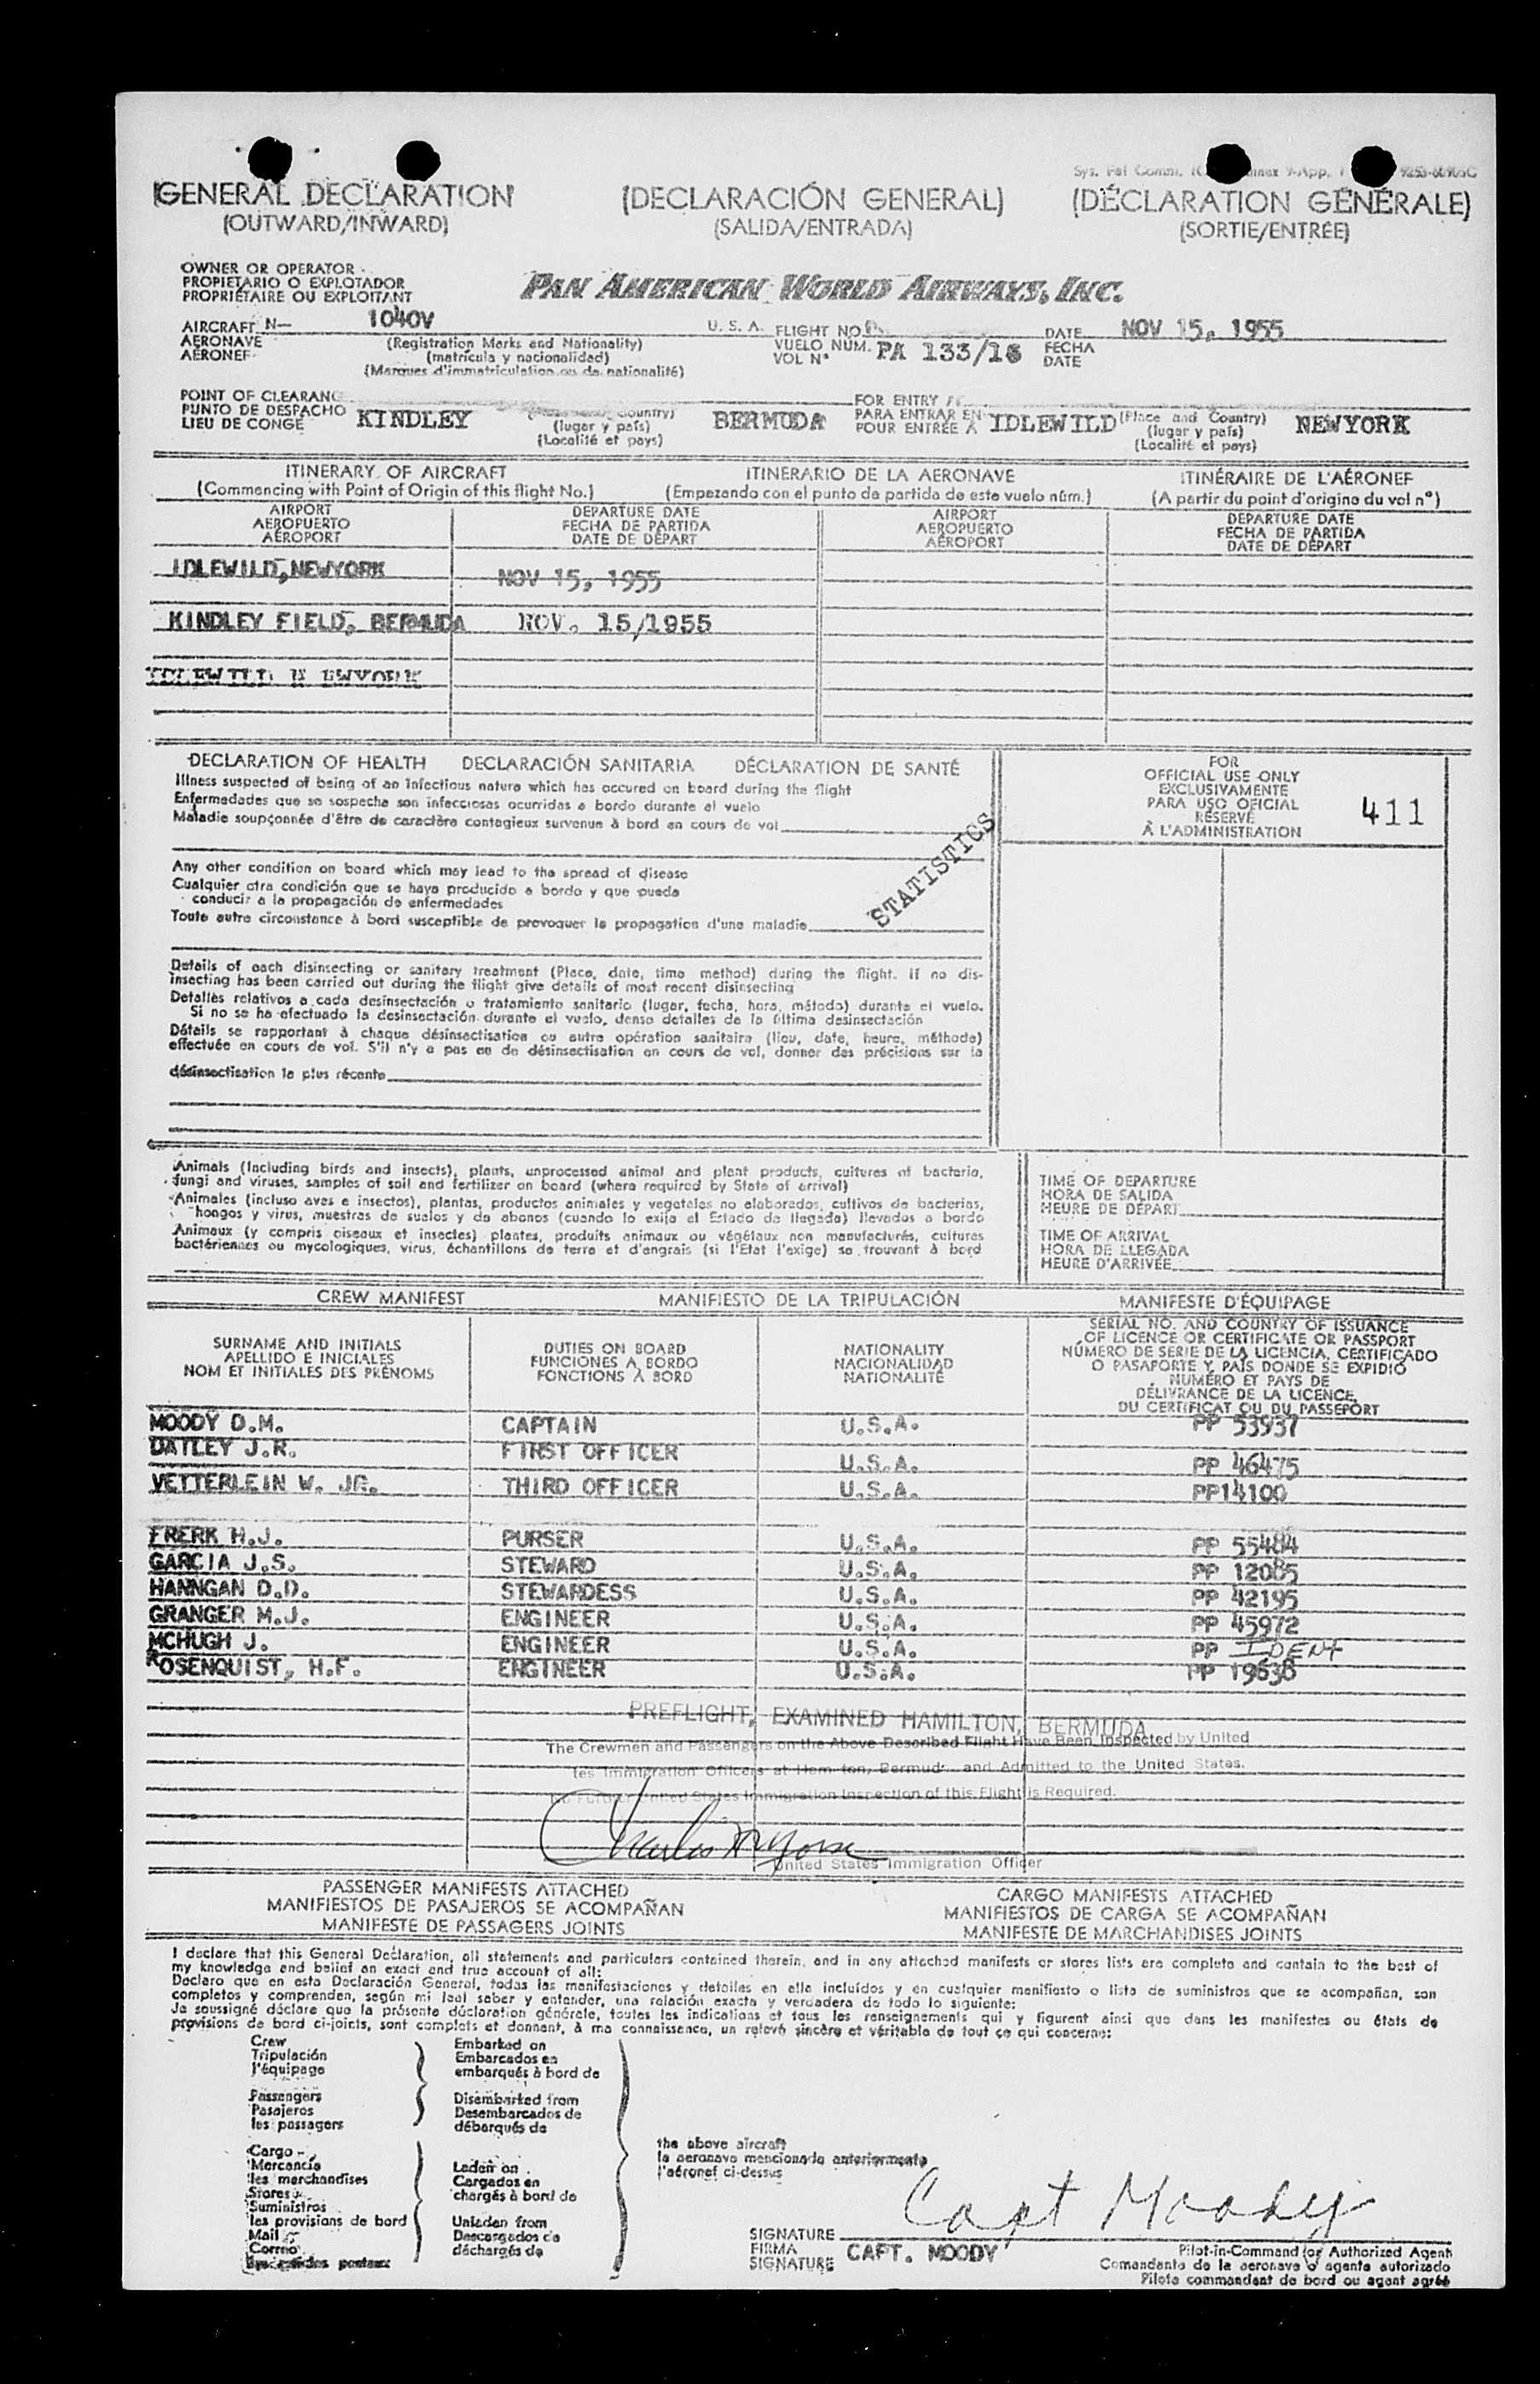 GENERAL DECLARATION (DECLARACIÓN GENERAL) (DÉCLARATION GÉNÉRALE)
(OUTWARD/INWARD) (SALIDA/ENTRADA) (SORTIE/ENTRÉE)
OWNER OR OPERATOR
PROPIETARIO O EXPLOTADOR
PROPRIÉTAIRE OU EXPLOITANT
PAN AMERICAN WORLD AIRWAYS, INC.
AIRCRAFT N— 1040V U. S. A. FLIGHT NO. DATE NOV 15, 1955
AERONAVE (Registration Marks and Nationality) VUELO NÚM. PA 133/16 FECHA
AÉRONEF (matrícula y nacionalidad) VOL N° DATE
(Marques d'immatriculation ou de nationalité)
POINT OF CLEARANCE FOR ENTRY
PUNTO DE DESPACHO KINDLEY Country) BERMUDA PARA ENTRAR EN IDLEWILD (Place and Country) NEWYORK
LIEU DE CONGÉ (lugar y país) POUR ENTRÉE A (lugar y país)
(Localité et pays) (Localité et pays)
ITINERARY OF AIRCRAFT ITINERARIO DE LA AERONAVE ITINÉRAIRE DE L'AÉRONEF
(Commencing with Point of Origin of this flight No.) (Empezando con el punto de partida de este vuelo núm.) (A partir du point d'origine du vol n°)
AIRPORT DEPARTURE DATE AIRPORT DEPARTURE DATE
AEROPUERTO FECHA DE PARTIDA AEROPUERTO FECHA DE PARTIDA
AÉROPORT DATE DE DÉPART AÉROPORT DATE DE DÉPART
IDLEWILD, NEWYORK NOV 15, 1955
KINDLEY FIELD, BERMUDA NOV. 15/1955
IDLEWILD N EWYORK
DECLARATION OF HEALTH DECLARACIÓN SANITARIA DÉCLARATION DE SANTÉ
Illness suspected of being of an infectious nature which has occured on board during the flight
Enfermedades que se sospecha son infecciosas ocurridas a bordo durante el vuelo
Maladie soupçonnée d'être de caractère contagieux survenue à bord en cours de vol
FOR
OFFICIAL USE ONLY
EXCLUSIVAMENTE
PARA USO OFICIAL
RÉSERVÉ
À L'ADMINISTRATION
411
STATISTICS
Any other condition on board which may lead to the spread of disease
Cualquier otra condición que se haya producido a bordo y que pueda
conducir a la propagación de enfermedades
Toute autre circonstance à bord susceptible de provoquer la propagation d'une maladie
Details of each disinsecting or sanitary treatment (Place, date, time method) during the flight. If no dis-
insecting has been carried out during the flight give details of most recent disinsecting
Detalles relativos a cada desinsectación o tratamiento sanitario (lugar, fecha, hora, método) durante el vuelo.
Si no se ha efectuado la desinsectación durante el vuelo, dense detalles de la última desinsectación
Détails se rapportant à chaque désinsectisation ou autre opération sanitaire (lieu, date, heure, méthode)
effectuée en cours de vol. S'il n'y a pas eu de désinsectisation en cours de vol, donner des précisions sur la
désinsectisation la plus récente
Animals (Including birds and insects), plants, unprocessed animal and plant products, cultures of bacteria,
fungi and viruses, samples of soil and fertilizer on board (where required by State of arrival)
Animales (incluso aves e insectos), plantas, productos animales y vegetales no elaborados, cultivos de bacterias,
hongos y virus, muestras de suelos y de abonos (cuando lo exija el Estado de llegada) llevados a bordo
Animaux (y compris oiseaux et insectes) plantes, produits animaux ou végétaux non manufacturés, cultures
bactériennes ou mycologiques, virus, échantillons de terre et d'engrais (si l'Etat l'exige) se trouvant à bord
TIME OF DEPARTURE
HORA DE SALIDA
HEURE DE DÉPART
TIME OF ARRIVAL
HORA DE LLEGADA
HEURE D'ARRIVÉE
CREW MANIFEST MANIFIESTO DE LA TRIPULACIÓN MANIFESTE D'ÉQUIPAGE
SURNAME AND INITIALS
APELLIDO E INICIALES
NOM ET INITIALES DES PRÉNOMS
DUTIES ON BOARD
FUNCIONES A BORDO
FONCTIONS À BORD
NATIONALITY
NACIONALIDAD
NATIONALITÉ
SERIAL NO. AND COUNTRY OF ISSUANCE
OF LICENCE OR CERTIFICATE OR PASSPORT
NÚMERO DE SERIE DE LA LICENCIA, CERTIFICADO
O PASAPORTE Y PAÍS DONDE SE EXPIDIÓ
NUMÉRO ET PAYS DE
DÉLIVRANCE DE LA LICENCE,
DU CERTIFICAT OU DU PASSEPORT
MOODY D.M. CAPTAIN U.S.A. PP 53937
DATLEY J.R. FIRST OFFICER U.S.A. PP 46475
VETTERLEIN W. JR. THIRD OFFICER U.S.A. PP14100
FRERK H.J. PURSER U.S.A. PP 55484
GARCIA J.S. STEWARD U.S.A. PP 12085
HANNGAN D.D. STEWARDESS U.S.A. PP 42195
GRANGER M.J. ENGINEER U.S.A. PP 45972
MCHUGH J. ENGINEER U.S.A. PP IDENT
ROSENQUIST, H.F. ENGINEER U.S.A. PP 19638
PREFLIGHT, EXAMINED HAMILTON, BERMUDA
The Crewmen and Passengers on the Above Described Flight Have Been Inspected by United
tes Immigration Officers at Ham ton, Bermud and Admitted to the United States.
No Further United States Immigration Inspection of this Flight is Required.
United States Immigration Officer
PASSENGER MANIFESTS ATTACHED CARGO MANIFESTS ATTACHED
MANIFIESTOS DE PASAJEROS SE ACOMPAÑAN MANIFIESTOS DE CARGA SE ACOMPAÑAN
MANIFESTE DE PASSAGERS JOINTS MANIFESTE DE MARCHANDISES JOINTS
I declare that this General Declaration, all statements and particulars contained therein, and in any attached manifests or stores lists are complete and contain to the best of
my knowledge and belief an exact and true account of all:
Declaro que en esta Declaración General, todas las manifestaciones y detalles en ella incluídos y en cualquier manifiesto o lista de suministros que se acompañan, son
completos y comprenden, según mi leal saber y entender, una relación exacta y verdadera de todo lo siguiente:
Je soussigné déclare que la présente déclaration générale, toutes les indications et tous les renseignements qui y figurent ainsi que dans les manifestes ou états de
provisions de bord ci-joints, sont complets et donnent, à ma connaissance, un relevé sincère et véritable de tout ce qui concerne:
Crew
Tripulación
l'équipage
Passengers
Pasajeros
les passagers
Cargo
Mercancía
les marchandises
Stores
Suministros
les provisions de bord
Mail
Correo
Embarked on
Embarcados en
embarqués à bord de
Disembarked from
Desembarcados de
débarqués de
Laden on
Cargados en
chargés à bord de
Unladen from
Descargados de
déchargés de
the above aircraft
la aeronave mencionada anteriormente
l'aéronef ci-dessus
Capt Moody
SIGNATURE
FIRMA CAPT. MOODY
SIGNATURE
Pilot-in-Command (or Authorized Agent
Comandante de la aeronave o agente autorizado
Pilote commandant de bord ou agent agréé